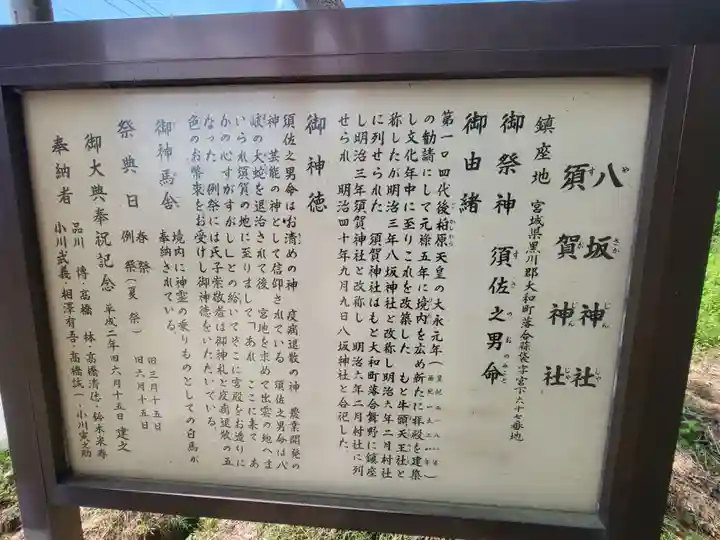 八坂神社
須賀神社
鎮座地 宮城県黒川郡大和町落合蒜袋字宮下六十七番地
御祭神 須佐之男命
御由緒
第一〇四代後柏原天皇の大永元年(皇紀二一八一年 西紀一五二一年)
の勧請にして元禄五年に境内を広め新たに拝殿を建築
し文化年中に至りこれを改築した もと牛頭天王社と
称したが明治三年八坂神社と改称し明治六年二月村社
に列せられた 須賀神社はもと大和町落合舞野に鎮座
し明治三年須賀神社と改称し 明治六年二月村社に列
せられ 明治四十年九月九日八坂神社と合祀した
御神徳
須佐之男命はお清めの神 疫病退散の神 農業開発の
神 芸能の神として信仰されている 須佐之男命は八
岐の大蛇を退治されて後 宮地を求めて出雲の地へま
いられ須賀の地に至りまして「あれ ここに来て あ
がの心すがすがし」との給いてそこに宮殿をお造りに
なった 例祭には氏子崇敬者は御神札と疫病退散の五
色のお幣束をお受けし御神徳をいただいている。
御神馬舎 境内に神霊の乗りものとしての白馬が
奉納されている。
祭典日 春祭 旧三月十五日
例祭(夏祭) 旧六月十五日
御大典奉祝記念 平成二年四六月十五日 建之
奉納者 品川 博・高橋 林・高橋清徳・鈴木来寿
小川武義・相澤有吾・高橋誠一・小川寅之助